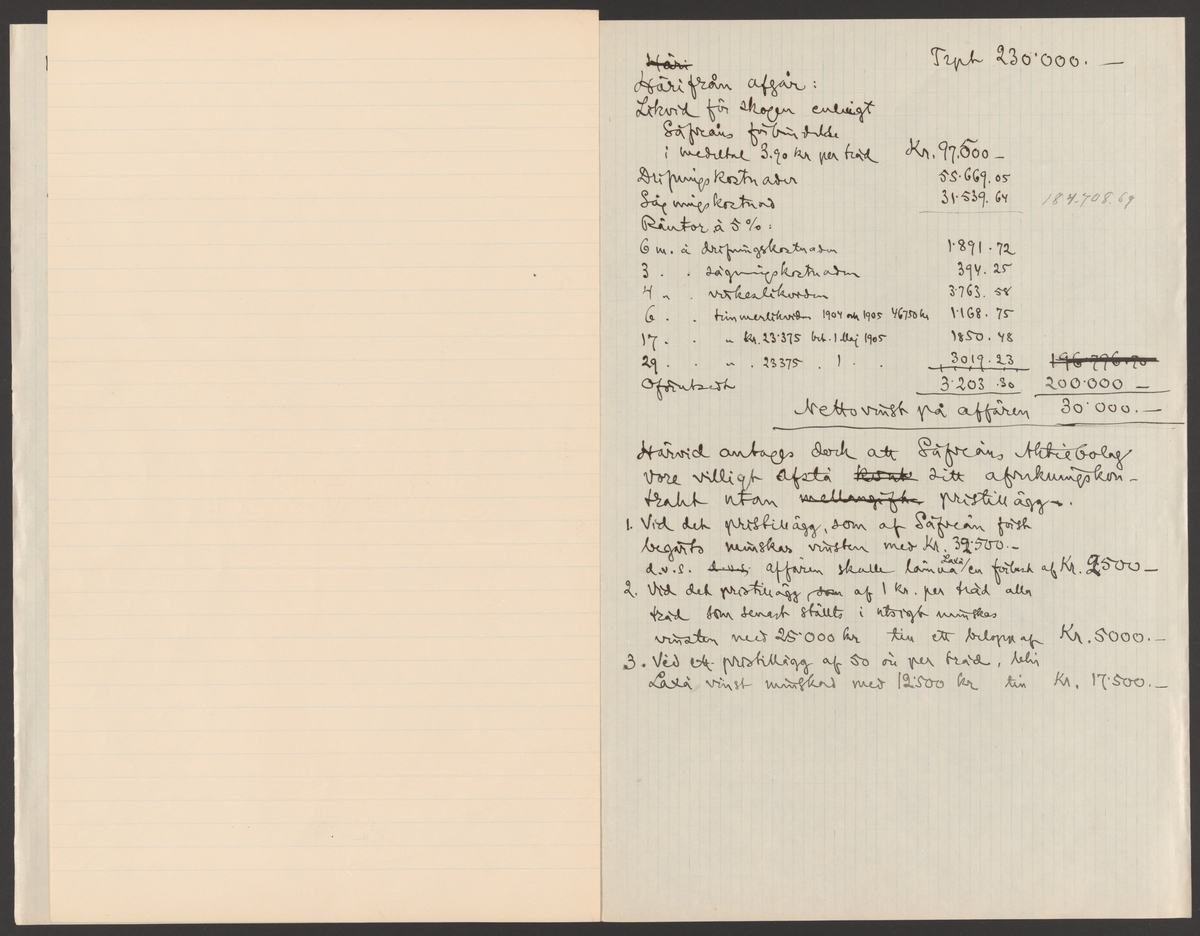 Häri
Trpt 230·000. —
Härifrån afgår:
Likvid för skogen enligt
Säfveåns förbindelse
i medeltal 3.90 kr per träd Kr. 97.500 —
Drifningskostnader 55·669.05
Sågningskostnad 31·539.64 184.708.69
Räntor à 5 %:
6 m. à drifningskostnaden 1·891.72
3 . . sågningskostnaden 394.25
4 „ . virkeslikviden 3·763.58
6 . . timmerlikviden 1904 och 1905 46750 kr 1·168.75
17 . . „ kr. 23·375 bet. 1 Maj 1905 1850.48
29 . . „ . 23375 . 1 . . 3019.23 196·796.70
Oförutsedt 3·203.30 200·000 —
Nettovinst på affären 30·000. —
Härvid antages dock att Säfveåns Aktiebolag
vore villigt afstå sitt afverkningskon-
trakt utan mellangift pristillägg.
1. Vid det pristillägg, som af Säfveån först
begärts minskas vinsten med Kr. 32·500.—
d.v.s. d.v.s. affären skulle lämna Laxå en förlust af Kr. 2500 —
2. Vid det pristillägg, som af 1 kr. per träd alla
träd som senast ställts i utsigt minskas
vinsten med 25·000 kr till ett belopp af Kr. 5000. —
3. Vid ett pristillägg af 50 öre per träd, blir
Laxå vinst minskad med 12·500 kr till Kr. 17·500. —